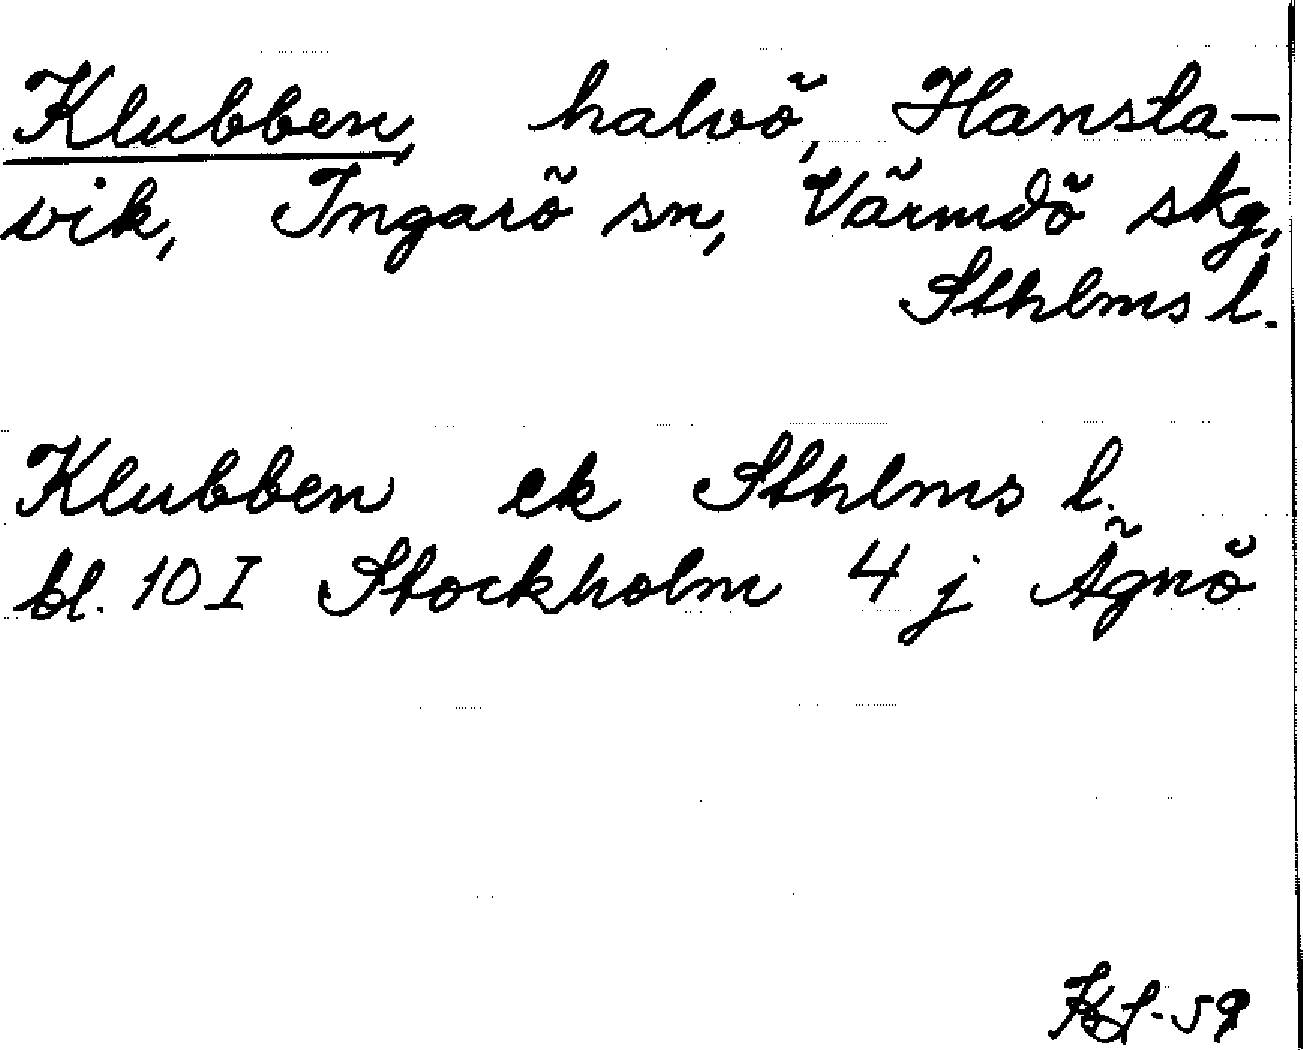 Klubben, halvö, Hansta-
vik, Ingarö sn, Värmdö skg,
Sthlms l.
Klubben ek Sthlms l.
bl. 10 I Stockholm 4 j Ägnö